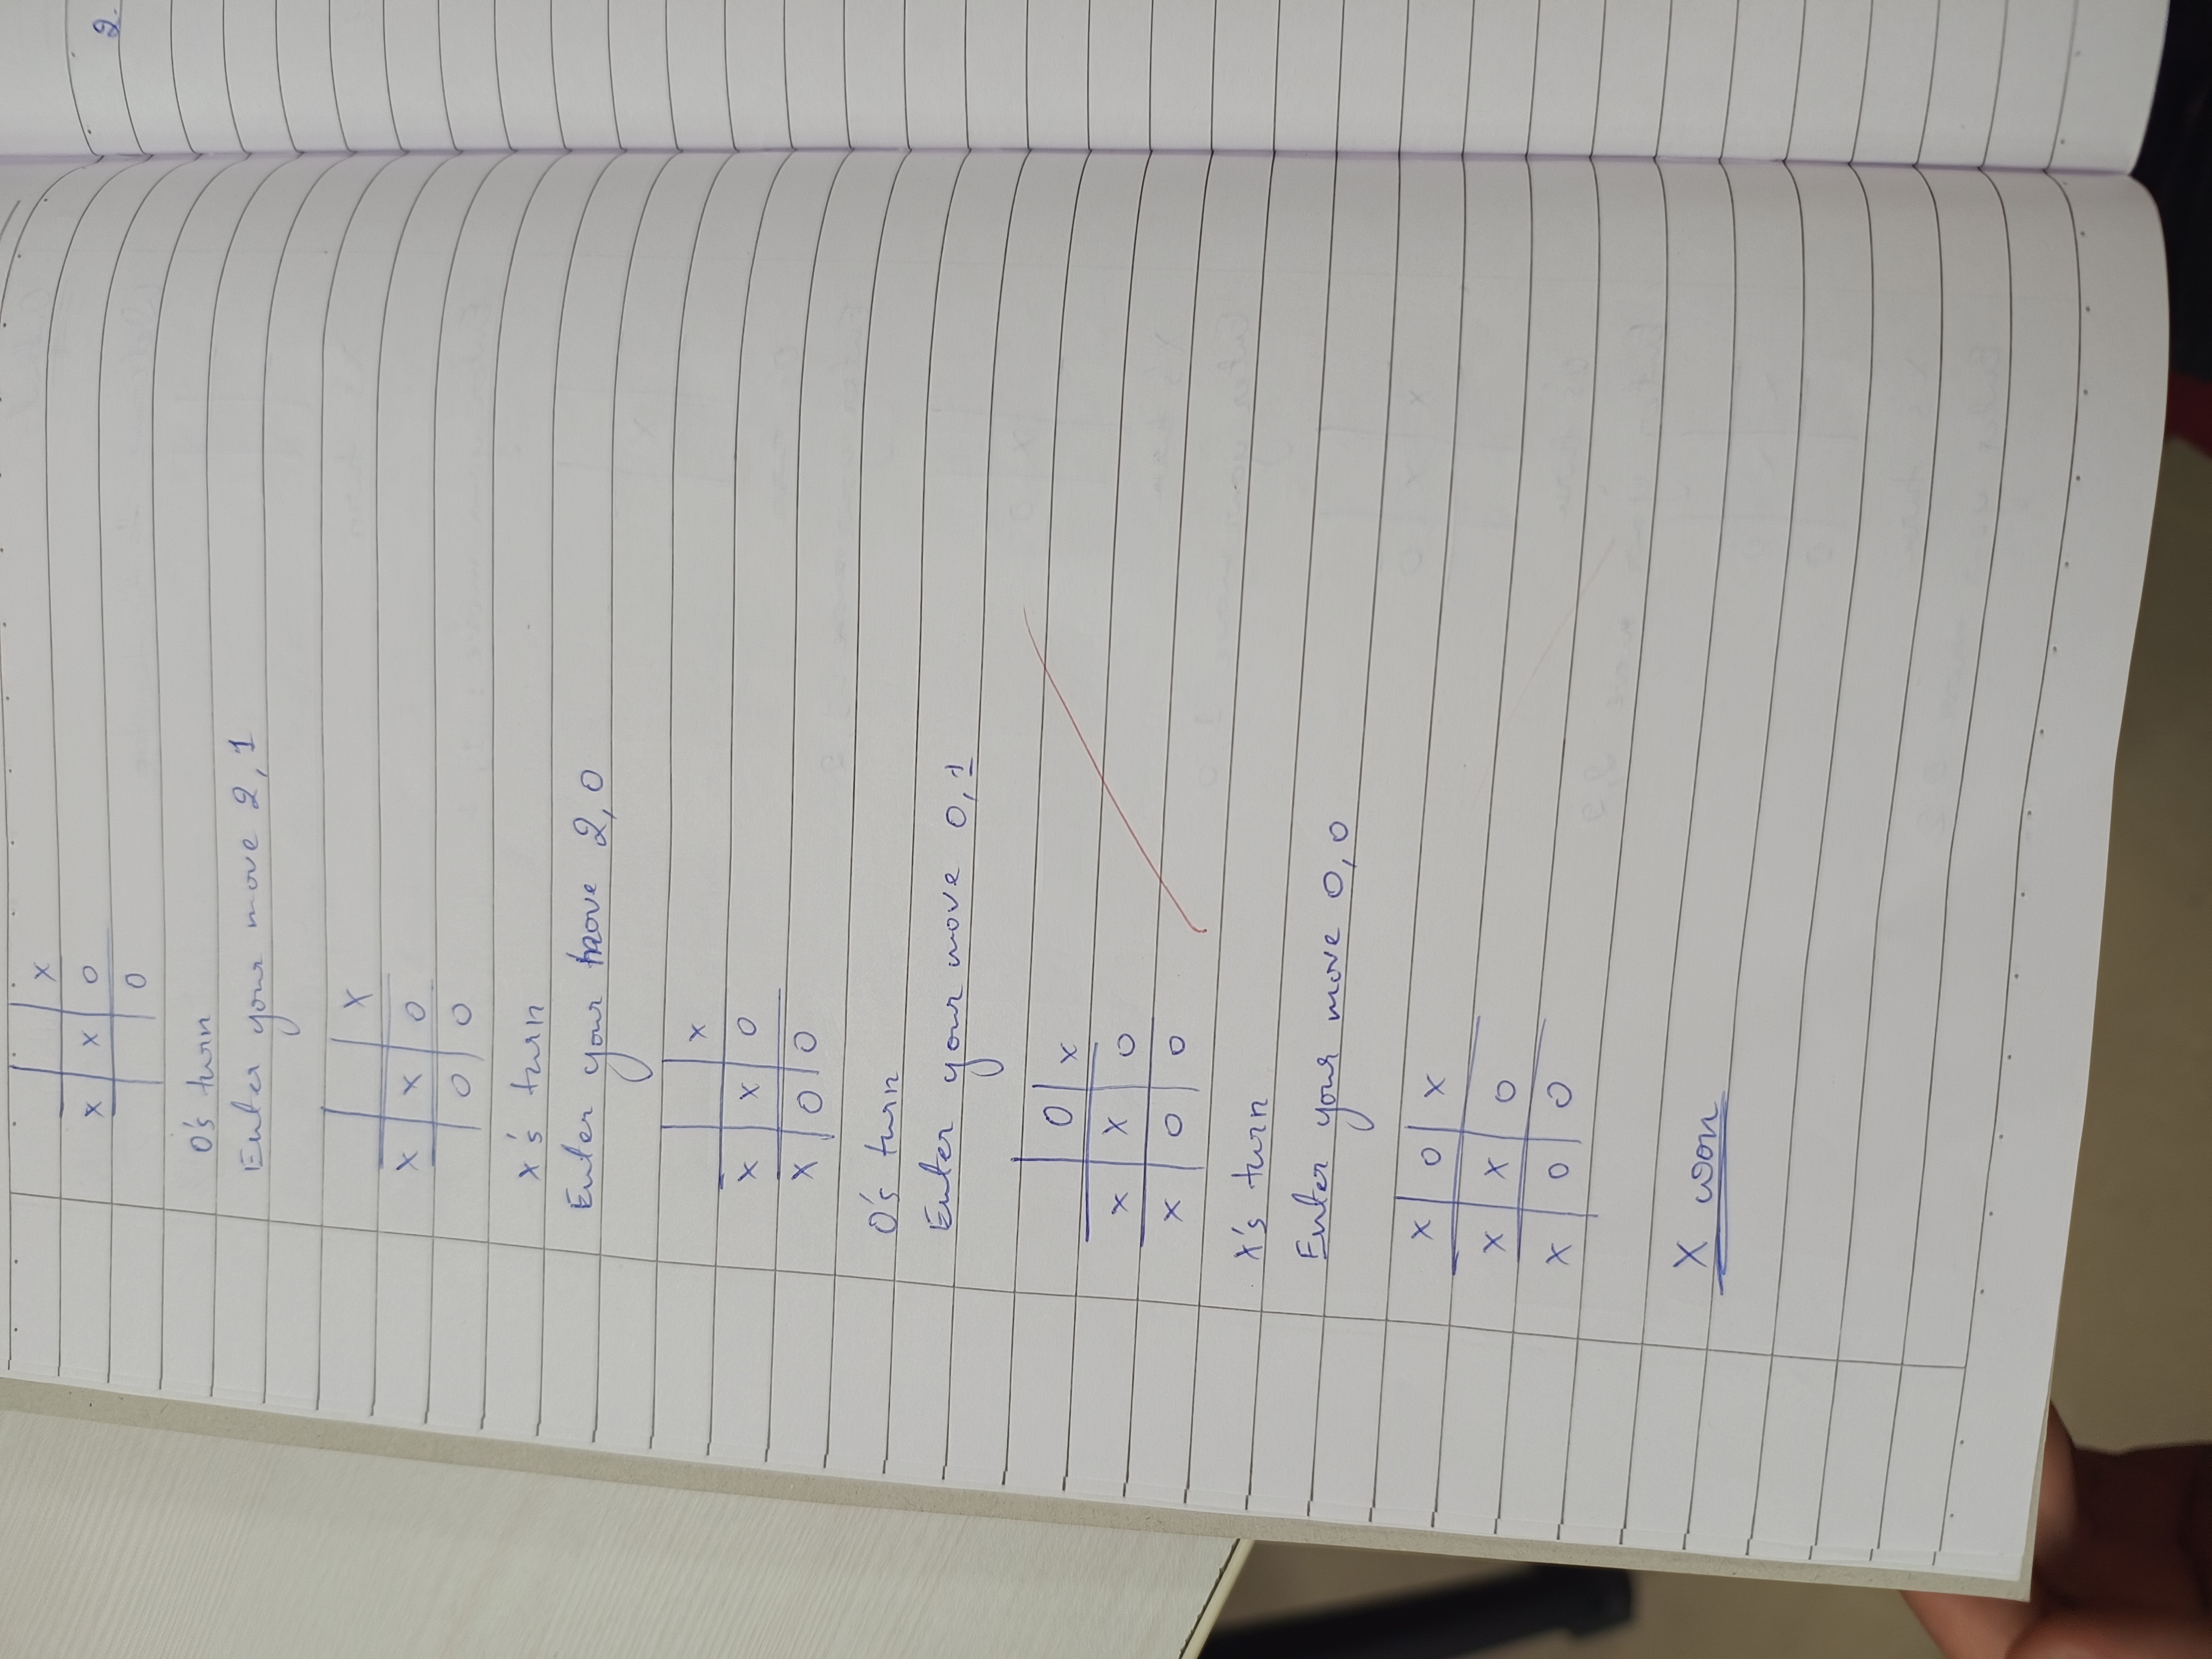 x
x x 0
0
0's turn
Enter your move 2, 1
x
x x 0
0 0
x's turn
Enter your move 2, 0
x
x x 0
x 0 0
0's turn
Enter your move 0, 1
0 x
x x 0
x 0 0
x's turn
Enter your move 0, 0
x 0 x
x x 0
x 0 0
X won
2.